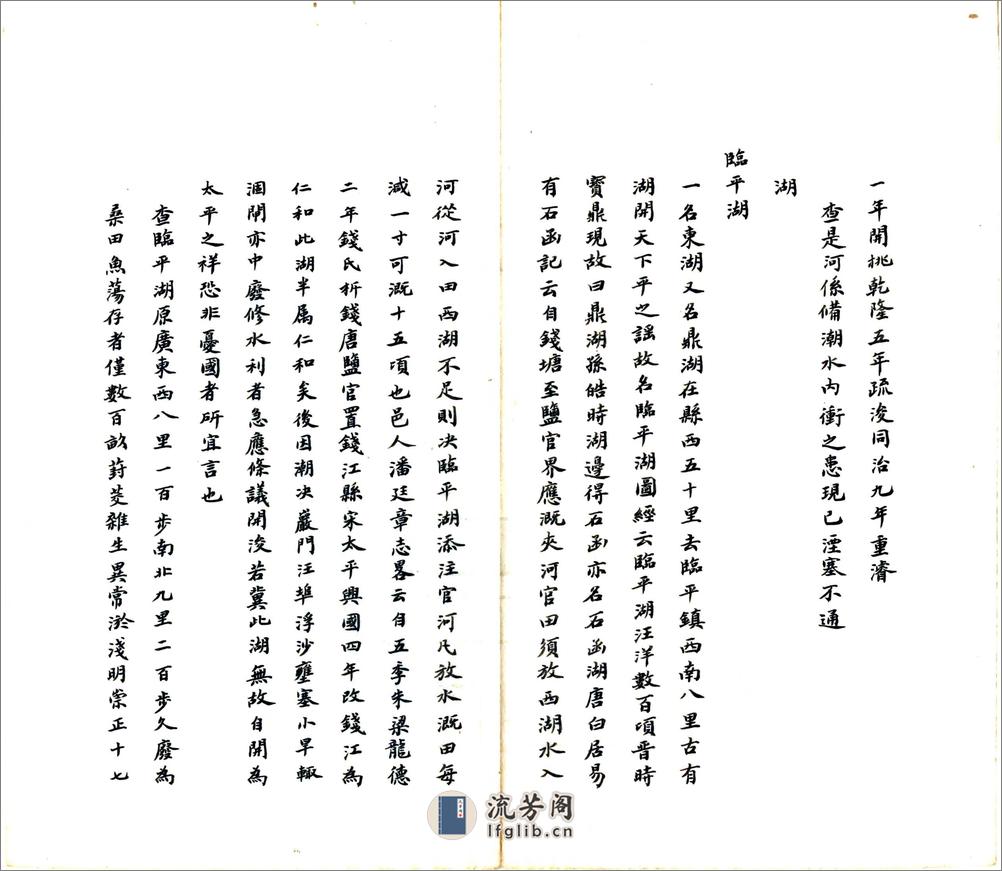 一年開挑乾隆五年疏浚同治九年重濬
查是河係備潮水內衝之患現已湮塞不通
湖
臨平湖
一名東湖又名鼎湖在縣西五十里去臨平鎮西南八里古有
湖開天下平之謠故名臨平湖圖經云臨平湖汪洋數百頃晋時
寳鼎現故曰鼎湖孫皓時湖邊得石函亦名石函湖唐白居易
有石函記云自錢塘至鹽官界應溉夾河官田須放西湖水入
河從河入田西湖不足則决臨平湖添注官河凡放水溉田每
减一寸可溉十五頃也邑人潘廷章志畧云自五季朱梁龍德
二年錢氏析錢唐鹽官置錢江縣宋太平興國四年改錢江為
仁和此湖半属仁和矣後因潮决巖門汪埠浮沙壅塞小旱輙
涸閘亦中廢修水利者急應條議開浚若冀此湖無故自開為
太平之祥恐非憂國者所宜言也
查臨平湖原廣東西八里一百步南北九里二百步久廢為
桑田魚蕩存者僅數百畝葑茭雜生異常淤淺明崇正十七
流芳阁
lfglib.cn